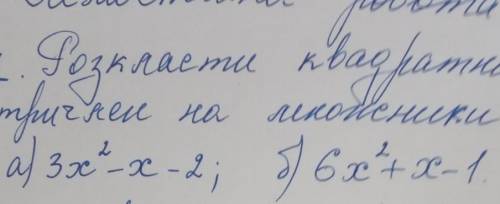 робота
. Розкласти квадратн
тричлен на множники
а) 3x² - x - 2; б) 6x² + x - 1.